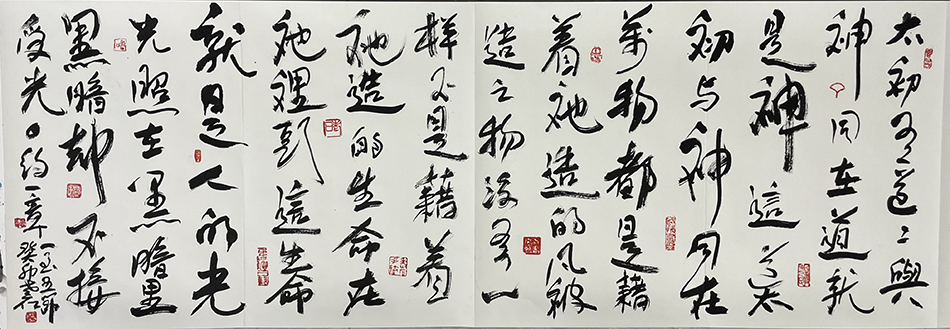 太初有道〻與
神同在道就
是神這道太
初与神同在
萬物都是藉
着祂造的凡被
造之物没有一
樣不是藉着
祂造的生命在
祂裡頭這生命
就是人的光
光照在黑暗里
黑暗却不接
受光。约一章
一至五節
癸卯